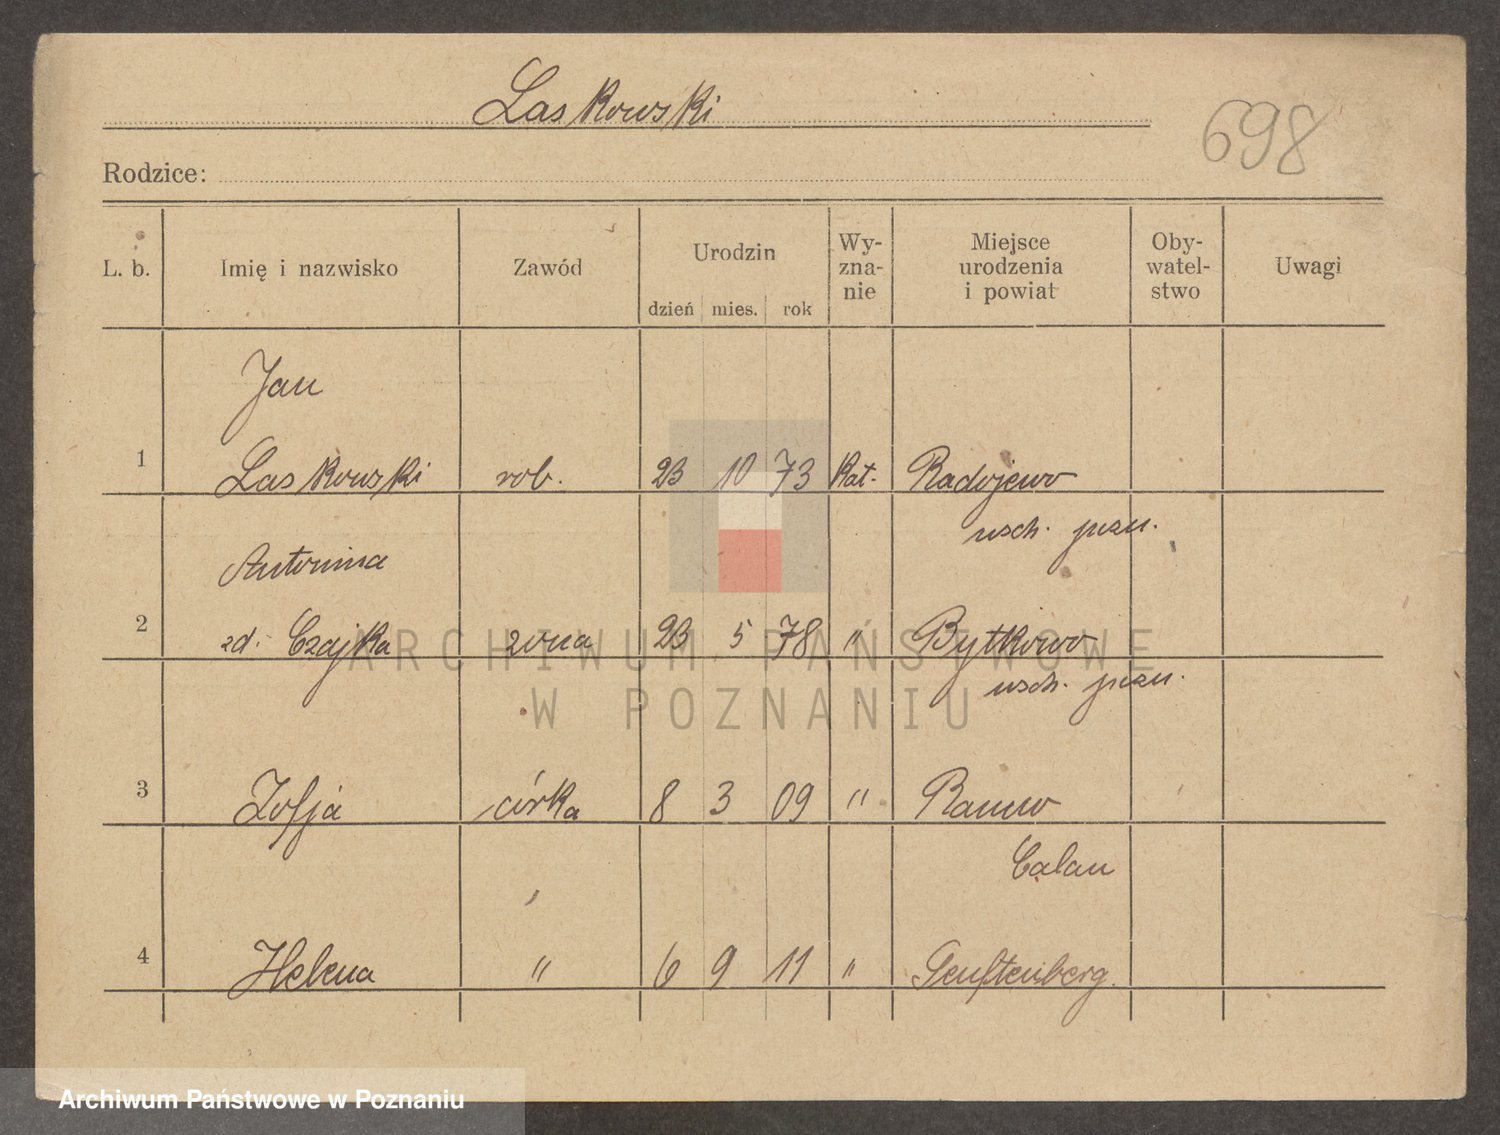 Laskowski
698
Rodzice:
L. b.
Imię i nazwisko
Zawód
Urodzin
dzień mies. rok
Wy-
zna-
nie
Miejsce
urodzenia
i powiat
Oby-
watel-
stwo
Uwagi
Jan
1 Laskowski rob. 23 10 73 Kat. Radojewo
wsch. pozn.
Antonina
2 zd. Czajka zona 23 5 78 " Bytkowo
wsch. pozn.
3 Zofja córka 8 3 09 "
Calau
4 Helena " 6 9 11 " Senftenberg.
ARCHIWUM PAŃSTWOWE
W POZNANIU
Archiwum Państwowe w Poznaniu